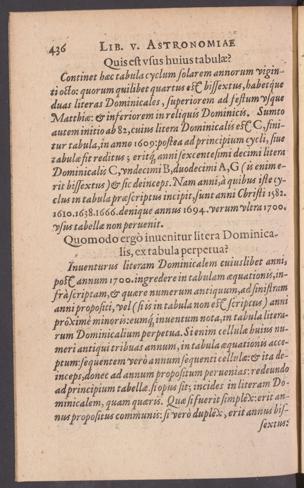 436 LIB. V. ASTRONOMIAE
Quis est vsus huius tabulæ?
Continet hæc tabula cyclum solarem annorum vigin-
ti octo: quorum quilibet quartus est bissextus, habetque
duas literas Dominicales, superiorem ad festum vsque
Matthiæ: & inferiorem in reliquis Dominicis. Sumto
autem initio ab 82, cuius litera Dominicalis est C, fini-
tur tabula, in anno 1609: postea ad principium cycli, siue
tabulæ fit reditus; eritq́, anni sexcentesimi decimi litera
Dominicalis C, vndecimi B, duodecimi A, G (is enim e-
rit bissextus) & sic deinceps. Nam anni, à quibus iste cy-
clus in tabula præscriptus incipit, sunt anni Christi 1582.
1610. 1638. 1666. denique annus 1694. verum vltra 1700.
vsus tabellæ non peruenit.
Quomodo ergò inuenitur litera Dominica-
lis, ex tabula perpetua?
Inuenturus literam Dominicalem cuiuslibet anni,
post annum 1700. ingredere in tabulam æquationis, in-
frà scriptam, & quære numerum antiquum, ad sinistram
anni propositi, vel (si is in tabula non est scriptus) anni
próximè minoris: eumq́, inuentum nota, in tabula litera-
rum Dominicalium perpetua. Si enim cellulæ huius nu-
meri antiqui tribuas annum, in tabula æquationis acce-
ptum: sequentem verò annum sequenti cellulæ: & ita de-
inceps, donec ad annum propositum peruenias: redeundo
ad principium tabellæ, si opus sit; incides in literam Do-
minicalem, quam quæris. Quæ si fuerit simplex: erit an-
nus propositus communis: si verò duplex, erit annus bis-
sextus: